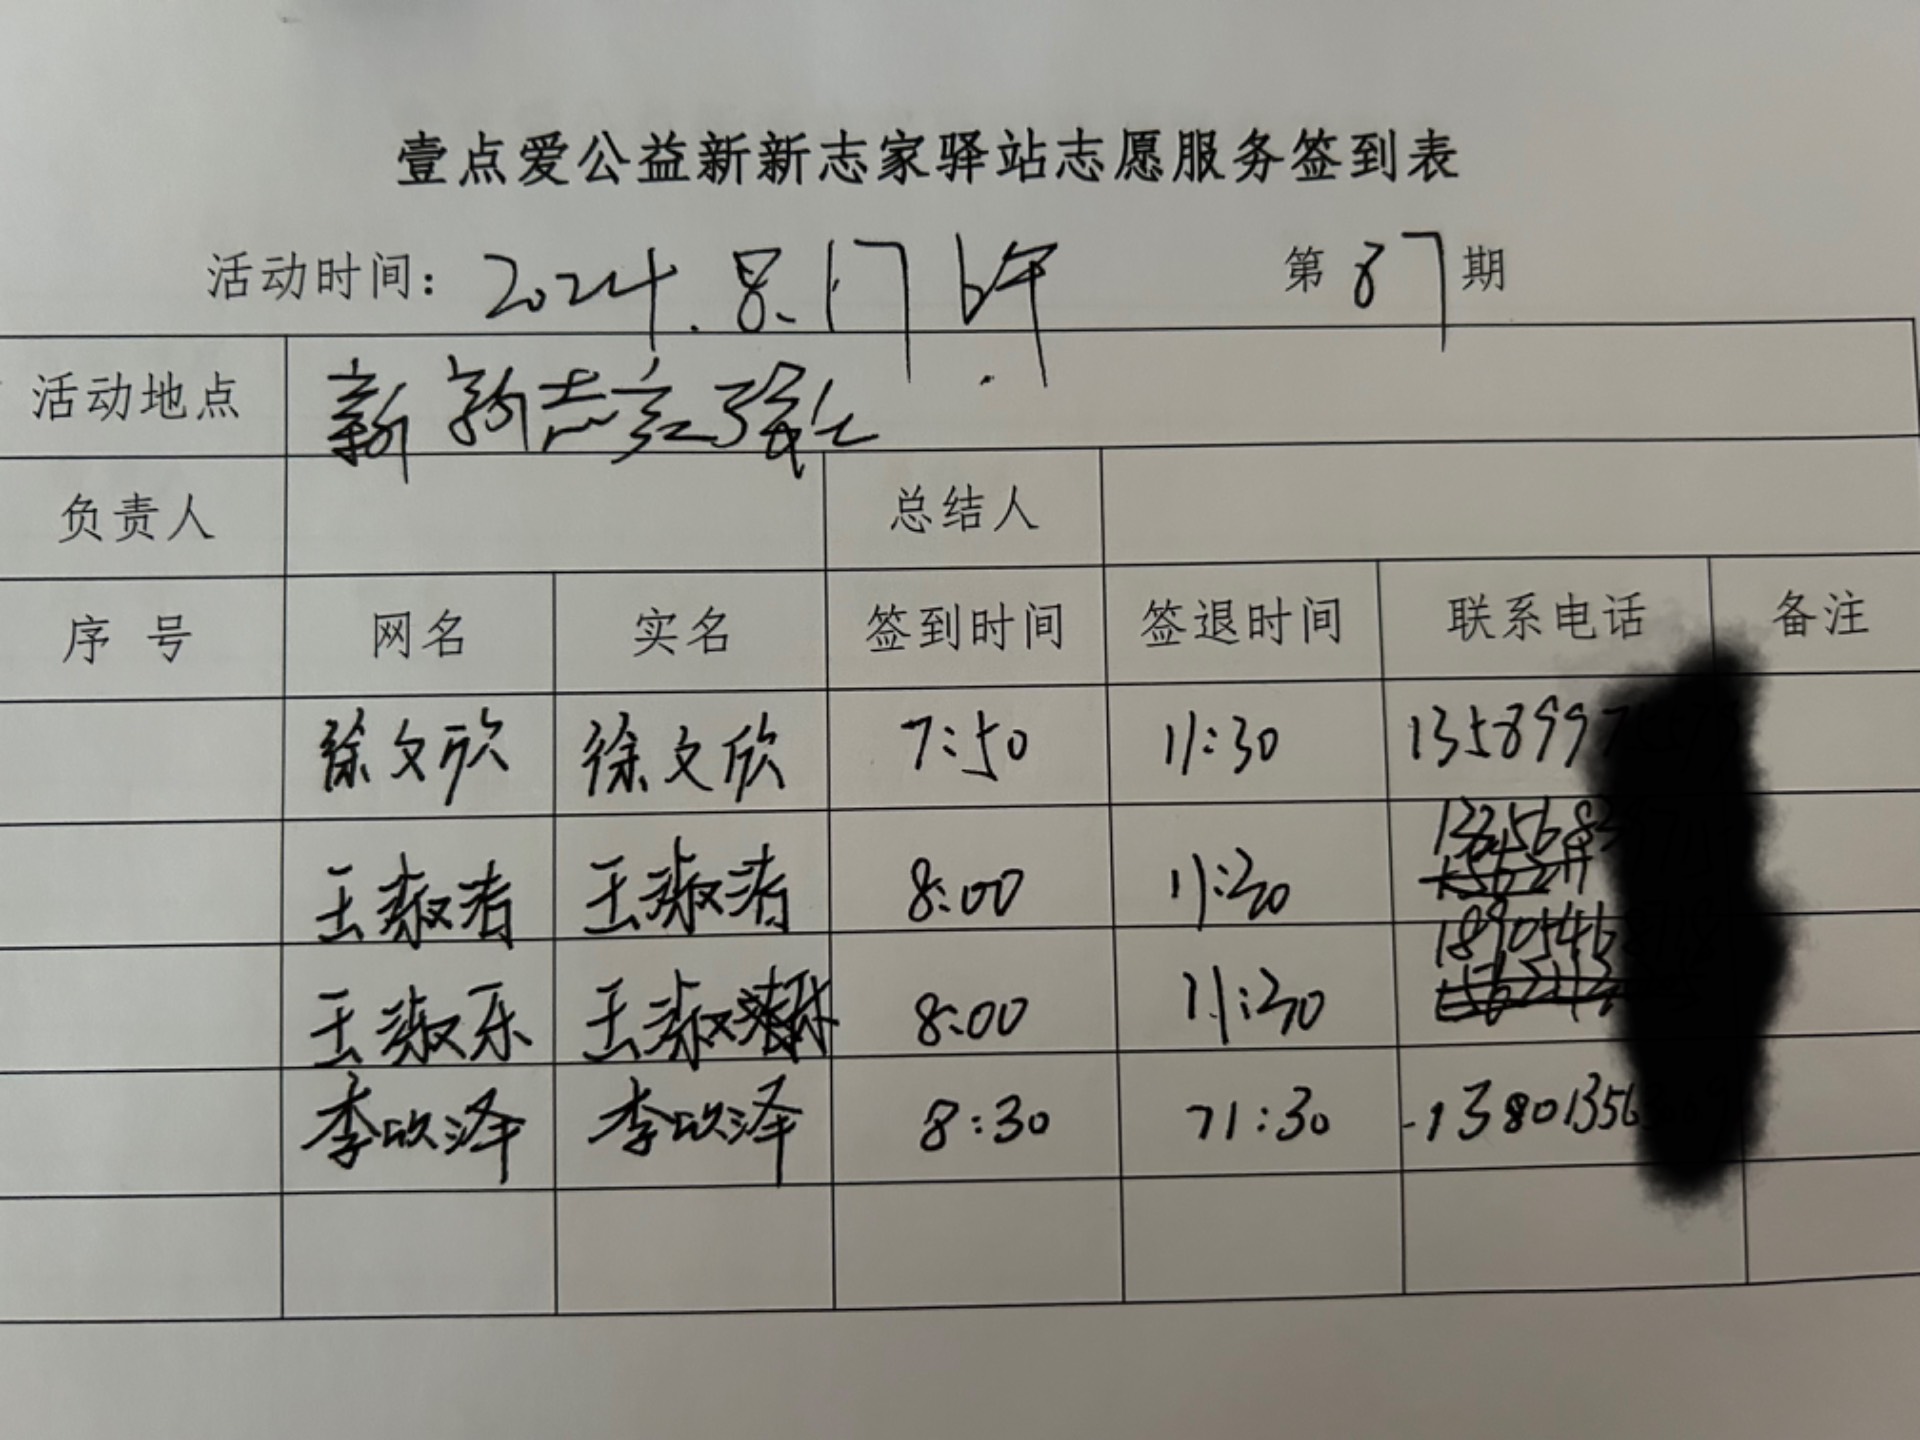 壹点爱公益新新志家驿站志愿服务签到表
活动时间: 2024.8.17 上午 第 87 期
活动地点 新新志家驿站
负责人 总结人
序 号 网名 实名 签到时间 签退时间 联系电话 备注
徐文欣 徐文欣 7:50 11:30 1358997
王淑 王淑 8:00 11:30 1325683
王淑乐 王淑 8:00 11:30 18905446
李欣泽 李欣泽 8:30 11:30 13801356